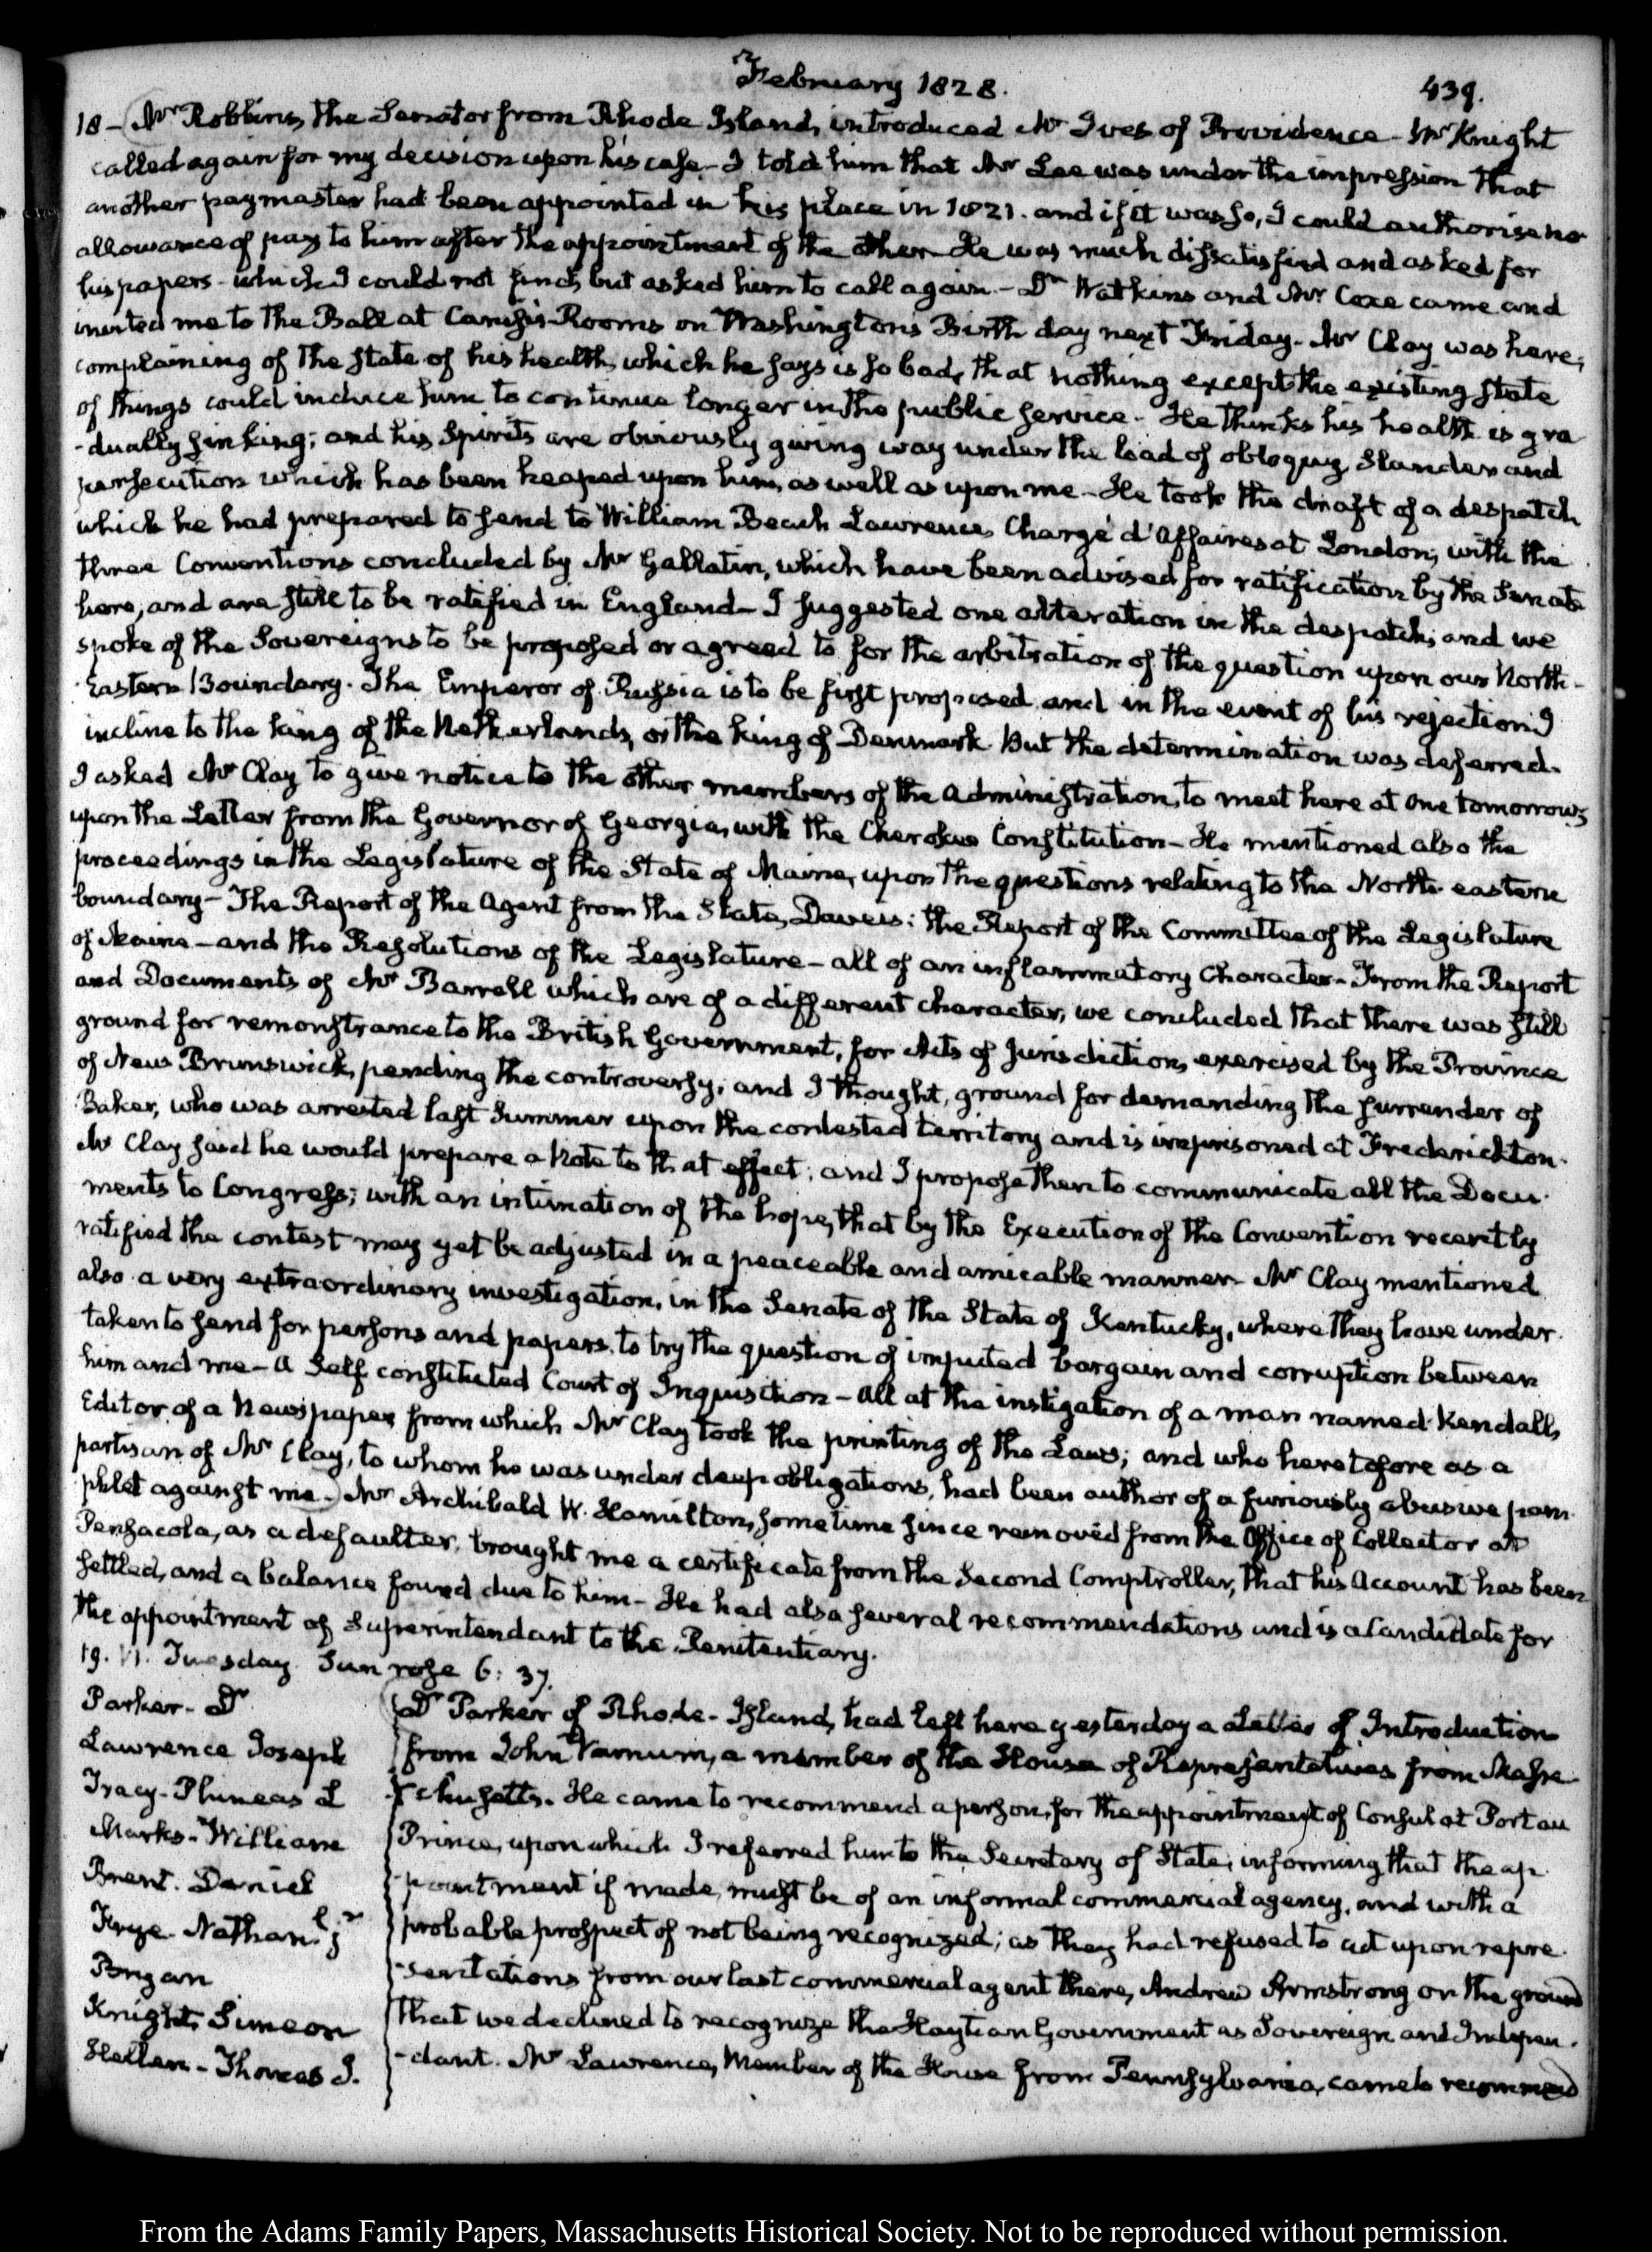 February 1828.
439.
18 – Mr Robbins, the Senator from Rhode Island, introduced Mr Ives of Providence – Mr Knight
called again for my decision upon his case – I told him that Mr Lee was under the impression that
another paymaster had been appointed in his place in 1821. and if it was so, I could authorise no
allowance of pay to him after the appointment of the other – He was much dissatisfied and asked for
his papers – which I could not find, but asked him to call again – Dr Watkins and Mr Coxe came and
invited me to the Ball at Carusi's Rooms on Washington's Birth day next Friday – Mr Clay was here;
complaining of the state of his health, which he says is so bad, that nothing except the existing state
of things could induce him to continue longer in the public service – He thinks his health is gra
-dually sinking; and his Spirits are obviously giving way under the load of obloquy, slander and
persecution which has been heaped upon him, as well as upon me – He took the draft of a despatch
which he had prepared to send to William Beach Lawrence, Chargé d'Affaires at London, with the
three Conventions concluded by Mr Gallatin, which have been advised for ratification by the Senate
here, and are still to be ratified in England – I suggested one alteration in the despatch, and we
spoke of the Sovereigns to be proposed or agreed to for the arbitration of the question upon our North-
Eastern Boundary. The Emperor of Russia is to be first proposed and in the event of his rejection I
incline to the king of the Netherlands, or the king of Denmark. But the determination was deferred.
I asked Mr Clay to give notice to the other members of the Administration, to meet here at one tomorrow,
upon the Letter from the Governor of Georgia, with the Cherokee Constitution – He mentioned also the
proceedings in the Legislature of the State of Maine, upon the questions relating to the North-eastern
boundary – The Report of the Agent from the State, Daveis: the Report of the Committee of the Legislature
of Maine – and the Resolutions of the Legislature – all of an inflammatory Character – From the Report
and Documents of Mr Barrell which are of a different character, we concluded that there was still
ground for remonstrance to the British Government, for Acts of Jurisdiction, exercised by the Province
of New Brunswick, pending the controversy, and I thought, ground for demanding the surrender of
Baker, who was arrested last Summer upon the contested territory and is imprisoned at Frederickton.
Mr Clay said he would prepare a Note to that effect; and I propose then to communicate all the Docu-
ments to Congress; with an intimation of the hope, that by the Execution of the Convention recently
ratified the contest may yet be adjusted in a peaceable and amicable manner – Mr Clay mentioned
also a very extraordinary investigation, in the Senate of the State of Kentucky, where they have under-
taken to send for persons and papers, to try the question of imputed bargain and corruption between
him and me – A Self constituted Court of Inquisition – All at the instigation of a man named Kendall,
Editor of a Newspaper from which Mr Clay took the printing of the Laws; and who heretofore as a
partisan of Mr Clay, to whom he was under deep obligations, had been author of a furiously abusive pam-
phlet against me – Mr Archibald W. Hamilton, sometime since removed from the Office of Collector at
Pensacola, as a defaulter, brought me a certificate from the Second Comptroller, that his Account has been
settled, and a balance found due to him – He had also several recommendations and is a Candidate for
the appointment of Superintendant to the Penitentiary.
19. VI. Tuesday. Sun rose 6: 37.
Parker – Dr
Lawrence Joseph
Tracy – Phineas L
Marks – William
Brent. Daniel
Frye – Nathanl jr
Bryan
Knight, Simeon
Hellen – Thomas J.
Dr Parker of Rhode-Island, had left here yesterday a Letter of Introduction
from John Varnum, a member of the House of Representatives from Massa-
chusetts. He came to recommend a person, for the appointment of Consul at Port au
Prince, upon which I referred him to the Secretary of State, informing that the ap-
-pointment if made, must be of an informal commercial agency, and with a
probable prospect of not being recognized; as they had refused to act upon repre-
-sentations from our last commercial agent there, Andrew Armstrong on the ground
that we declined to recognize the Haytian Government as Sovereign and Indepen-
-dant. Mr Lawrence, Member of the House from Pennsylvania, came to recommend
From the Adams Family Papers, Massachusetts Historical Society. Not to be reproduced without permission.